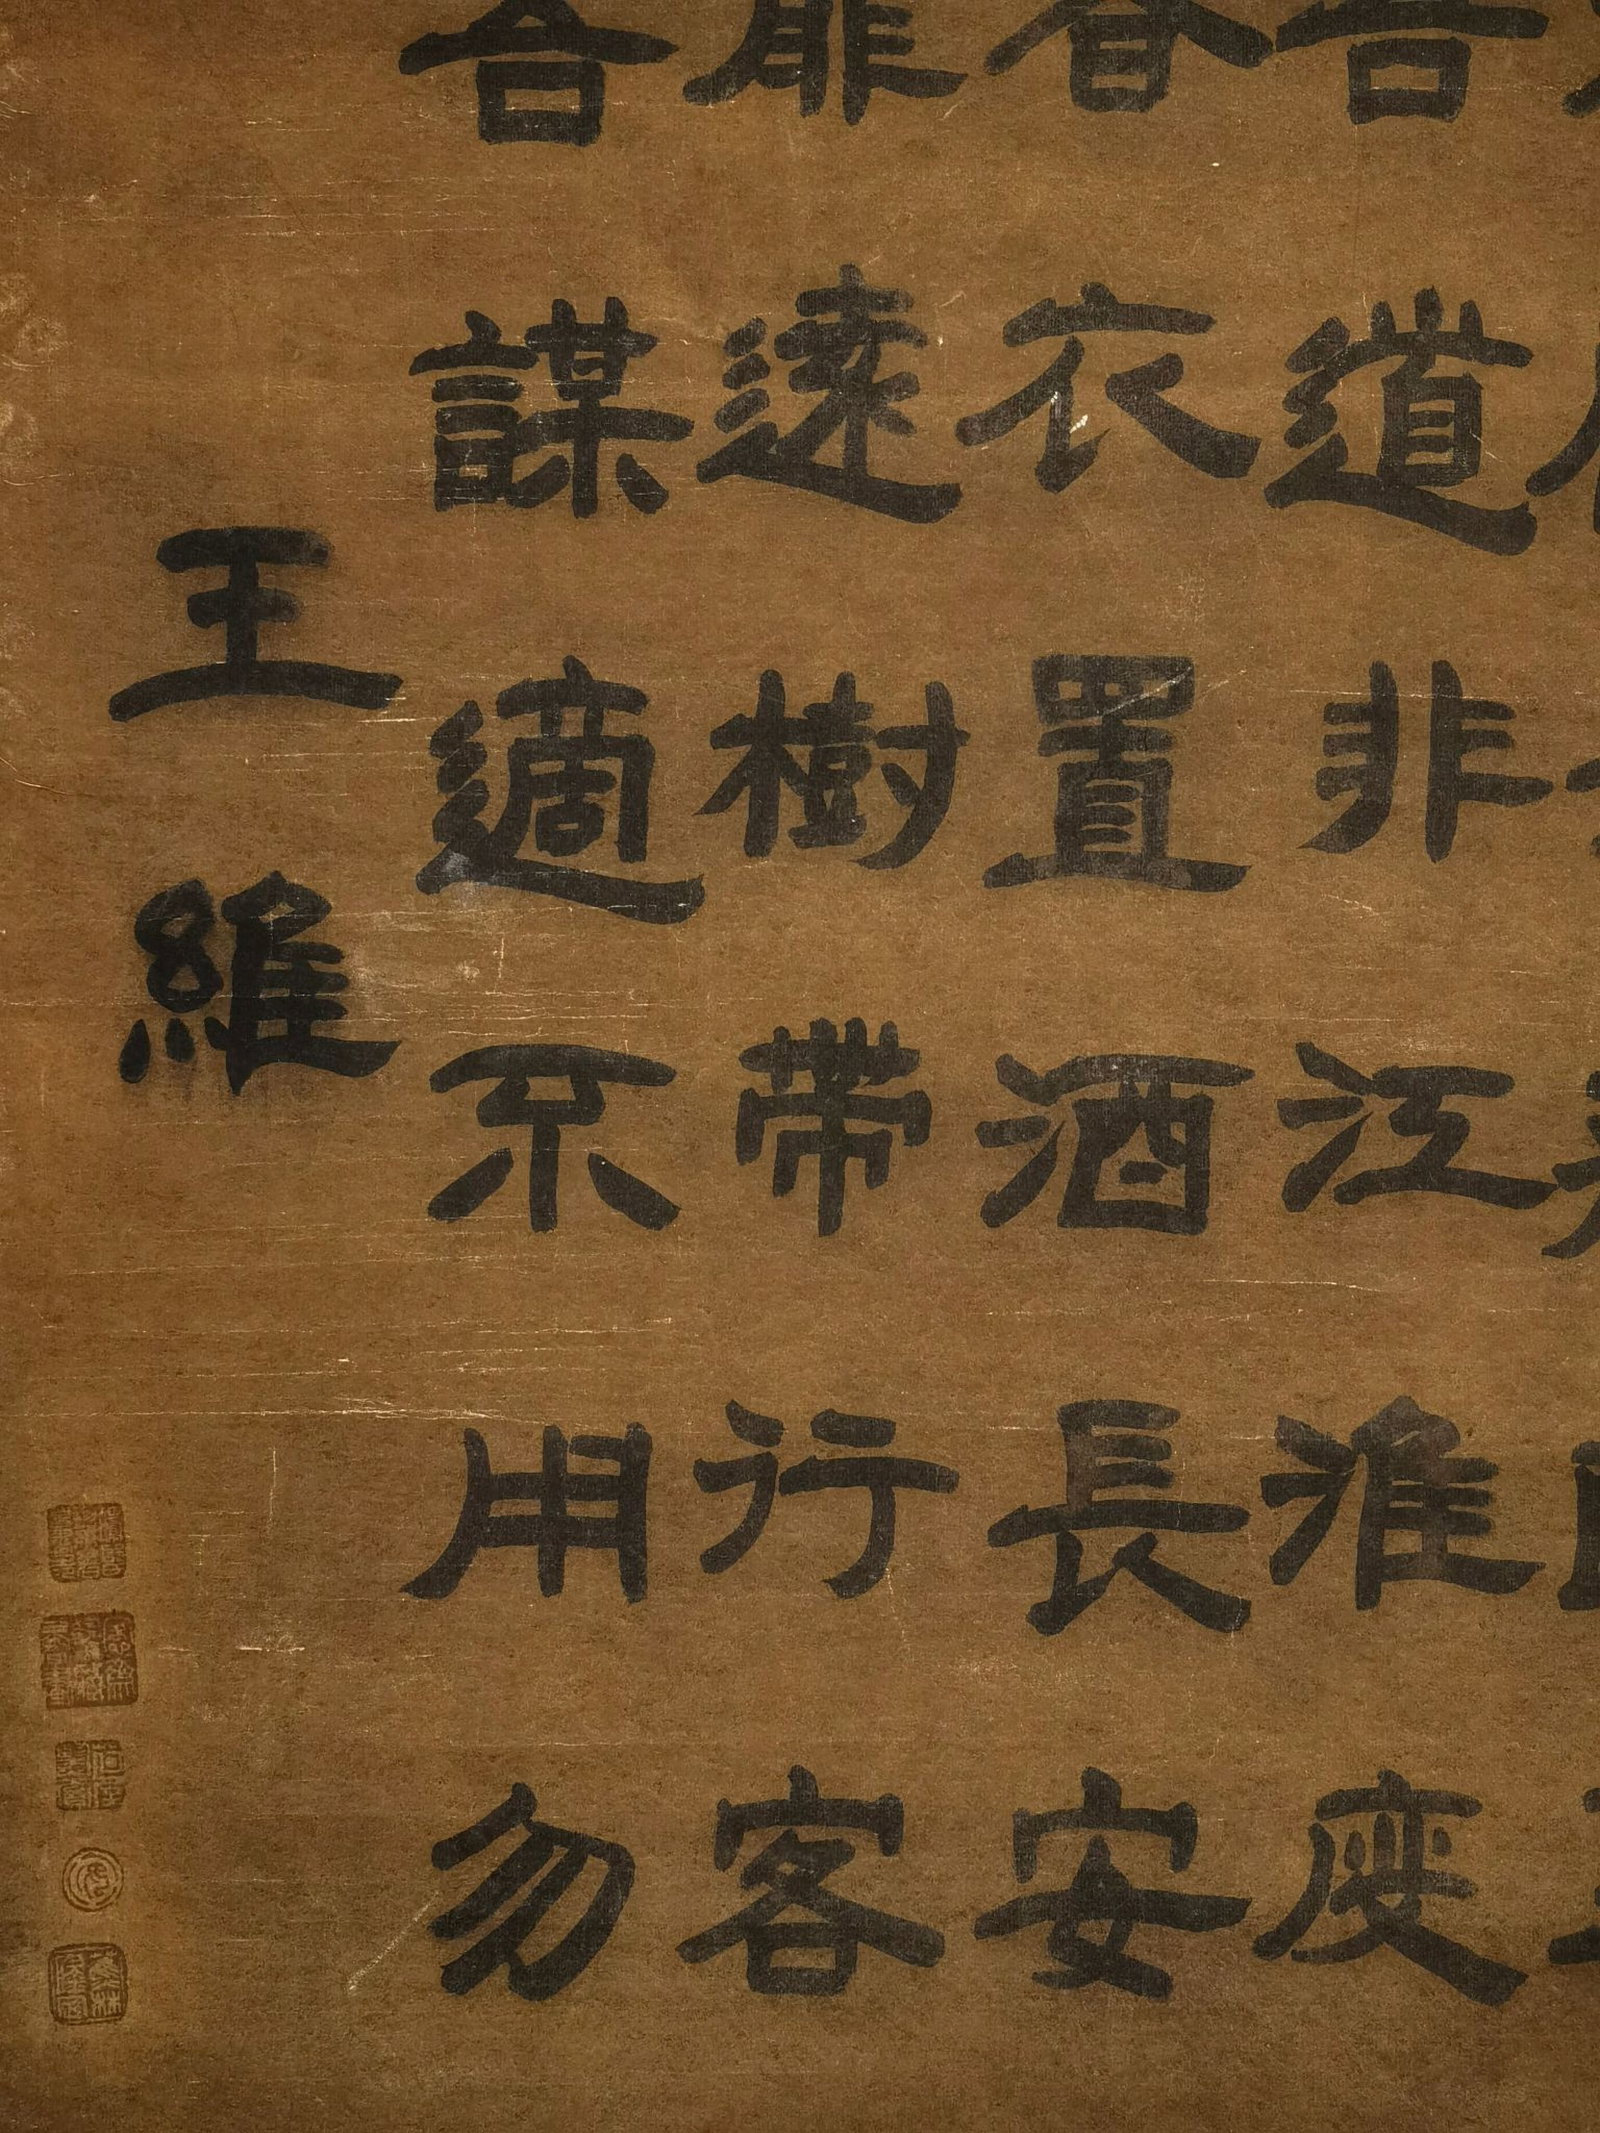 吾道非江淮度
春衣置酒長安
扉遠樹帶行客
吾謀適不用勿
王維